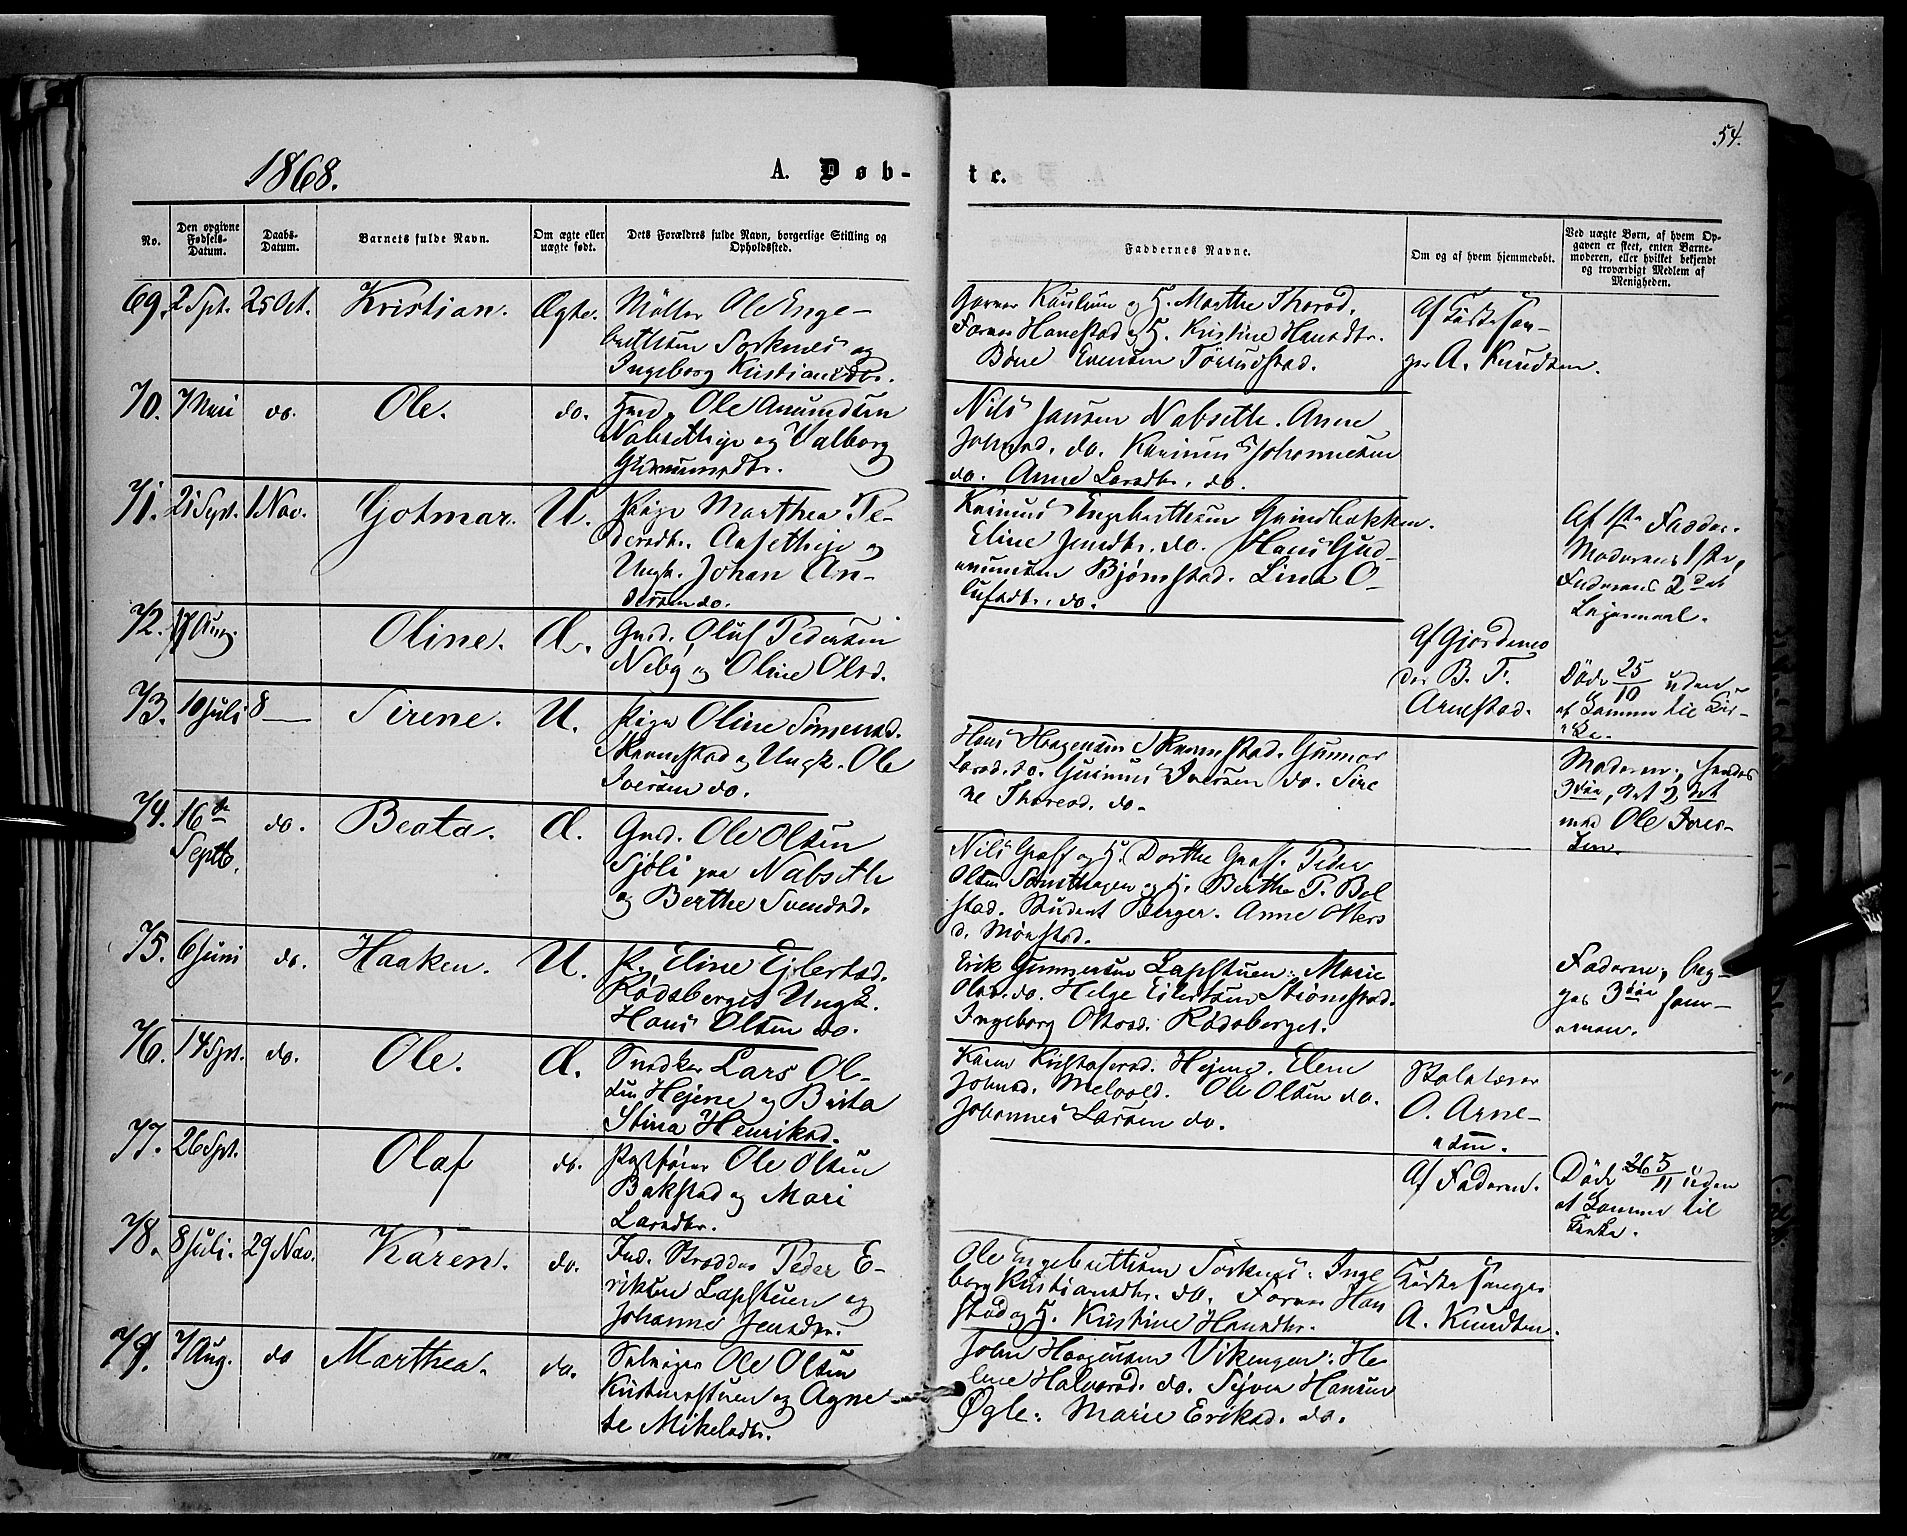 54.
1868.
A. Døb-
te.
No.
Den opgivne Fødsels-Datum.
Daabs-Datum.
Barnets fulde Navn.
Om ægte eller uægte født.
Dets Forældres fulde Navn, borgerlige Stilling og Opholdssted.
Faddernes Navne.
Om og af hvem hjemmedøbt.
Ved uægte Børn, af hvem Op-
gaven er skeet, enten Barne-
moderen, eller hvilket bekjendt
og troværdigt Medlem af
Menigheden.
69. 2 Spt. 25 Oct. Kristian. Ægte. Møller Ole Enge-
brettsen Sorknes og
Ingeborg Kristiansdtr.
Marthe Thorsd.
Hanestad og H. Kristine Hansdtr.
Evensen
Af Kirkesan-
ger A. Knudsen.
70. 7 Mai do. Ole. do. Gmd. Ole Amundsen
Nabsetheje og Valborg
Gudmundsdtr.
Nils Jensen Nabseth. Anne
Johnsd. do. Karinus Johannesen
do. Anne Larsdtr. do.
71. 21 Sept. 1 Nov. Gjotmar. U. Pige Marthea Pe-
dersdtr. Aasetheje og
Ungk. Johan An-
dersen do.
Karinus Engebrettsen Grindbakken.
Eline Jensdtr. do. Hans Gud-
mundsen Bjørnstad. Lina O-
lufsdtr. do.
Af 1ste Fadder.
Moderens 1ste,
Faderens 2det
Lejermaal.
72. 17 Aug. Oline. Æ. Gmd. Oluf Pedersen
Neby og Oline Olsd.
Af Gjordemo
der B. T.
Arnestad.
Døde 25/10 uden
at komme til Kir-
ke.
73. 10 Juli 8 — Sirene. U. Pige Oline Simensd.
Skramstad og Ungk. Ole
Iversen do.
Hans Haagensen Skramstad. Gunnor
Larsd. do. Gunnus Iversen do. Sire
ne Thoresd. do.
Moderen; hendes
3die, det 2det
med Ole Iver-
sen.
74. 16de
Septb. do. Beata. Æ. Gmd. Ole Olsen
Sjøli paa Nabseth
og Berthe Svendsd.
Nils Graff og H. Dorthe Graff. Peder
Olsen og H. Berthe P. Bol
stad. Student Berger. Anne Olers
d. Mønstad.
75. 6 Juni do. Haaken. U. P. Eline Ejlertsd.
Rødsberget Ungk.
Hans Olsen do.
Erik Gunnersen Lapstuen. Marie
Olsd. do. Helge Eilertsen Strømstad.
Ingeborg Olsd. Rødsberget.
Faderen; beg-
ges 3die sam-
men.
76. 14 Spt. do. Ole. Æ. Snedker Lars Ol-
sen Hejene og Brita
Stina Henriksd.
Karen Kristofersd. Hejene. Elene
Johnsd. Melvold. Ole Olsen do.
Johannes Larsen do.
Skolelærer
O. Arne-
sen.
77. 26 Spt. Olaf do. Ole Olsen
Bakstad og Mari
Larsdtr.
Af Faderen.
Døde 5/11 uden
at komme til
Kirke.
78. 8 Juli. 29 Nov. Karen. do. Ind. Skrædder Peder E-
riksen Lapstuen og
Johanne Jensdtr.
Ole Engebrettsen Sorknes. Inge
borg Kristiansdtr. do. Han
stad og H. Kristine Hansdtr.
Kirkesanger
A. Knudsen.
79. 7 Aug. do Marthea. do. Selvejer Ole Olsen
Kristmostuen og Agne-
te Mikelsdtr.
John Haagensen Vikengen. He-
lene Halvorsd. do. Syver Hansen
Øgle. Marie Eriksd. do.